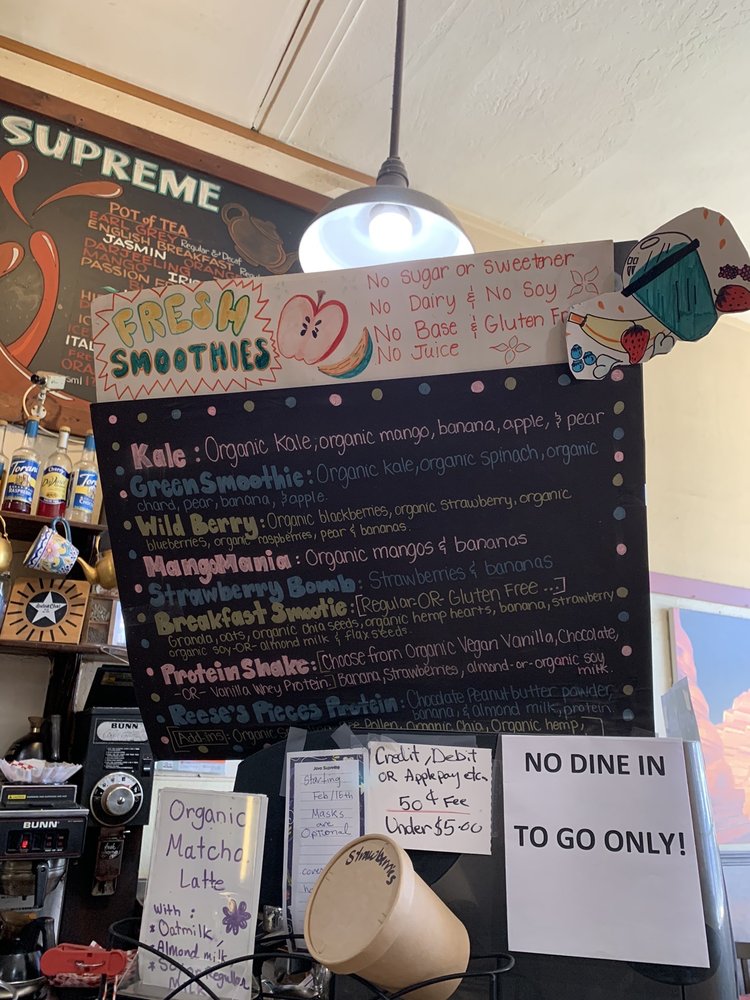 SUPREME
POT of TEA
EARL GREY Regular & Decaf
ENGLISH BREAKFAST
JASMIN
DARJEELING
MANGO
PASSION
FRESH
SMOOTHIES
No Sugar or Sweetner
No Dairy & No Soy
No Base & Gluten
No Juice
Kale: Organic Kale, organic mango, banana, apple, & pear
Green Smoothie: Organic kale, organic spinach, organic
chard, pear, banana, & apple.
Wild Berry: Organic blackberries, organic strawberry, organic
blueberries, organic raspberries, pear & bananas.
MangoMania: Organic mangos & bananas
Strawberry Bomb: Strawberries & bananas
Breakfast Smootie: [Regular-OR-Gluten Free...]
Granola, oats, organic chia seeds, organic hemp hearts, banana, strawberry
organic soy-OR-almond milk & flax seeds.
Protein Shake: [Choose from Organic Vegan Vanilla, Chocolate,
-OR- Vanilla Whey Protein.] Banana, strawberries, almond-or-organic soy
milk.
Reese's Pieces Protein: Chocolate Peanut butter powder,
banana, & almond milk, protein.
[Add-ins]: Organic Pollen, Organic Chia, Organic hemp,
Torani
RASPBERRY
Torani
BUNN
BUNN
Organic
Matcha
Latte
with:
* Oatmilk
* Almond milk
* Regular
Java Supreme
Starting
Feb/16th
Masks
are
Optional
Credit, Debit
OR Applepay etc.
50¢ Fee
Under $5.00
NO DINE IN
TO GO ONLY!
Strawberries